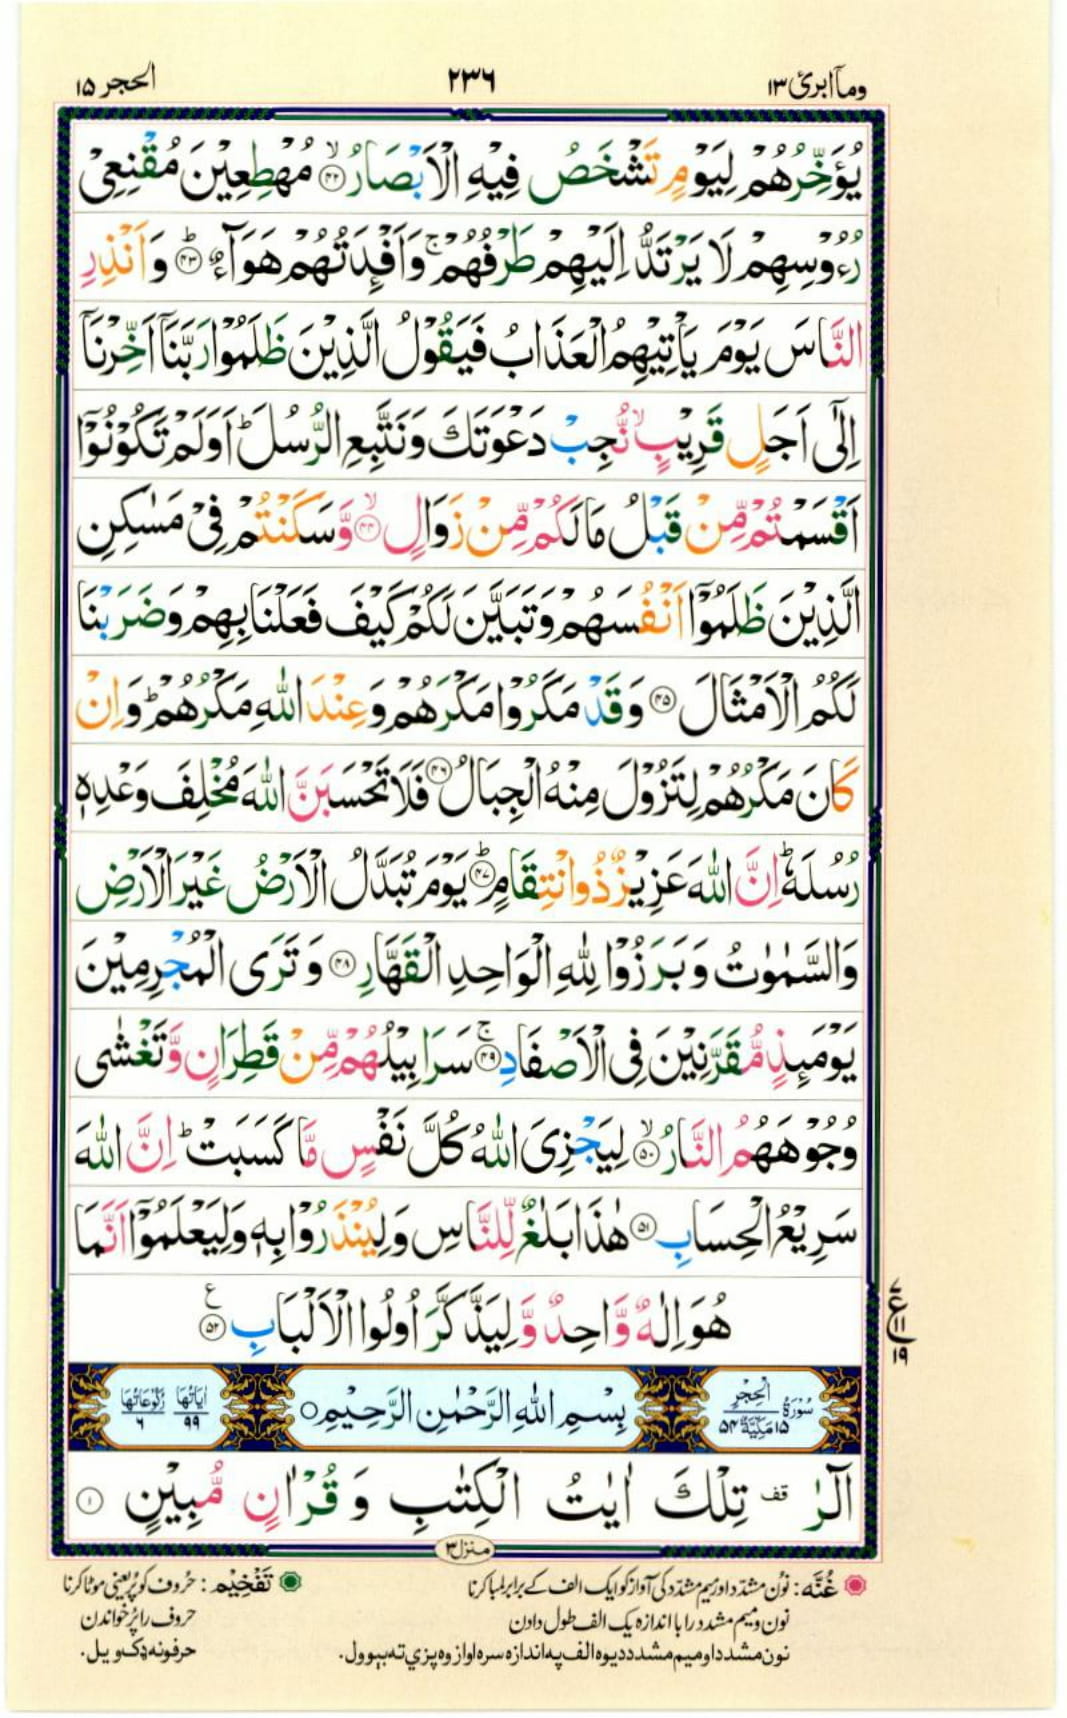 ومآ ابرئ ١٣
٢٣٦
الحجر ١٥
يُؤَخِّرُهُمْ لِيَوْمٍ تَشْخَصُ فِيْهِ الْاَبْصَارُ ۙ‏﴿۴۲﴾ مُهْطِعِيْنَ مُقْنِعِىْ
رُءُوْسِهِمْ لَا يَرْتَدُّ اِلَيْهِمْ طَرْفُهُمْ ۚ وَاَفْـِٕدَتُهُمْ هَوَآءٌ ؕ‏﴿۴۳﴾ وَاَنْذِرِ
النَّاسَ يَوْمَ يَاْتِيْهِمُ الْعَذَابُ فَيَقُوْلُ الَّذِيْنَ ظَلَمُوْا رَبَّنَاۤ اَخِّرْنَاۤ
اِلٰٓى اَجَلٍ قَرِيْبٍ ۙ نُّجِبْ دَعْوَتَكَ وَنَتَّبِعِ الرُّسُلَ ؕ اَوَلَمْ تَكُوْنُوْۤا
اَقْسَمْتُمْ مِّنْ قَبْلُ مَا لَكُمْ مِّنْ زَوَالٍ ۙ‏﴿۴۴﴾ وَّسَكَنْتُمْ فِىْ مَسٰكِنِ
الَّذِيْنَ ظَلَمُوْۤا اَنْفُسَهُمْ وَتَبَيَّنَ لَكُمْ كَيْفَ فَعَلْنَا بِهِمْ وَضَرَبْنَا
لَكُمُ الْاَمْثَالَ ‏﴿۴۵﴾ وَقَدْ مَكَرُوْا مَكْرَهُمْ وَعِنْدَ اللّٰهِ مَكْرُهُمْ ؕ وَاِنْ
كَانَ مَكْرُهُمْ لِتَزُوْلَ مِنْهُ الْجِبَالُ ‏﴿۴۶﴾ فَلَا تَحْسَبَنَّ اللّٰهَ مُخْلِفَ وَعْدِهٖ
رُسُلَهٗ ؕ اِنَّ اللّٰهَ عَزِيْزٌ ذُو انْتِقَامٍ ؕ‏﴿۴۷﴾ يَوْمَ تُبَدَّلُ الْاَرْضُ غَيْرَ الْاَرْضِ
وَالسَّمٰوٰتُ وَبَرَزُوْا لِلّٰهِ الْوَاحِدِ الْقَهَّارِ ‏﴿۴۸﴾ وَتَرَى الْمُجْرِمِيْنَ
يَوْمَىِٕذٍ مُّقَرَّنِيْنَ فِى الْاَصْفَادِ ۚ‏﴿۴۹﴾ سَرَابِيْلُهُمْ مِّنْ قَطِرَانٍ وَّتَغْشٰى
وُجُوْهَهُمُ النَّارُ ۙ‏﴿۵۰﴾ لِيَجْزِىَ اللّٰهُ كُلَّ نَفْسٍ مَّا كَسَبَتْ ؕ اِنَّ اللّٰهَ
سَرِيْعُ الْحِسَابِ ‏﴿۵۱﴾ هٰذَا بَلٰغٌ لِّلنَّاسِ وَلِيُنْذَرُوْا بِهٖ وَلِيَعْلَمُوْۤا اَنَّمَا
هُوَ اِلٰهٌ وَّاحِدٌ وَّلِيَذَّكَّرَ اُولُوا الْاَلْبَابِ ‏﴿۵۲﴾ ع
٧ ع ١١ ١٩
سُوْرَةُ الْحِجْرِ ١٥ مَكِّيَّةٌ ٥٤
بِسْمِ اللّٰهِ الرَّحْمٰنِ الرَّحِيْمِ ○
اٰيَاتُهَا ٩٩ رُكُوْعَاتُهَا ٦
الٓرٰ ۟ قف تِلْكَ اٰيٰتُ الْكِتٰبِ وَقُرْاٰنٍ مُّبِيْنٍ ‏﴿۱﴾
منزل ٣
غُنَّه : نون مشدّد اور میم مشدّد کی آواز کو ایک الف کے برابر لمبا کرنا
تَفْخِيْم : حروف کو پُر یعنی موٹا کرنا
نون و میم مشدد را با اندازه یک الف طول دادن
حروف را پر خواندن
نون مشدد او میم مشدد د یوه الف په اندازه سره اواز وه پزي ته بېوول.
حرفونه ډک ویل.